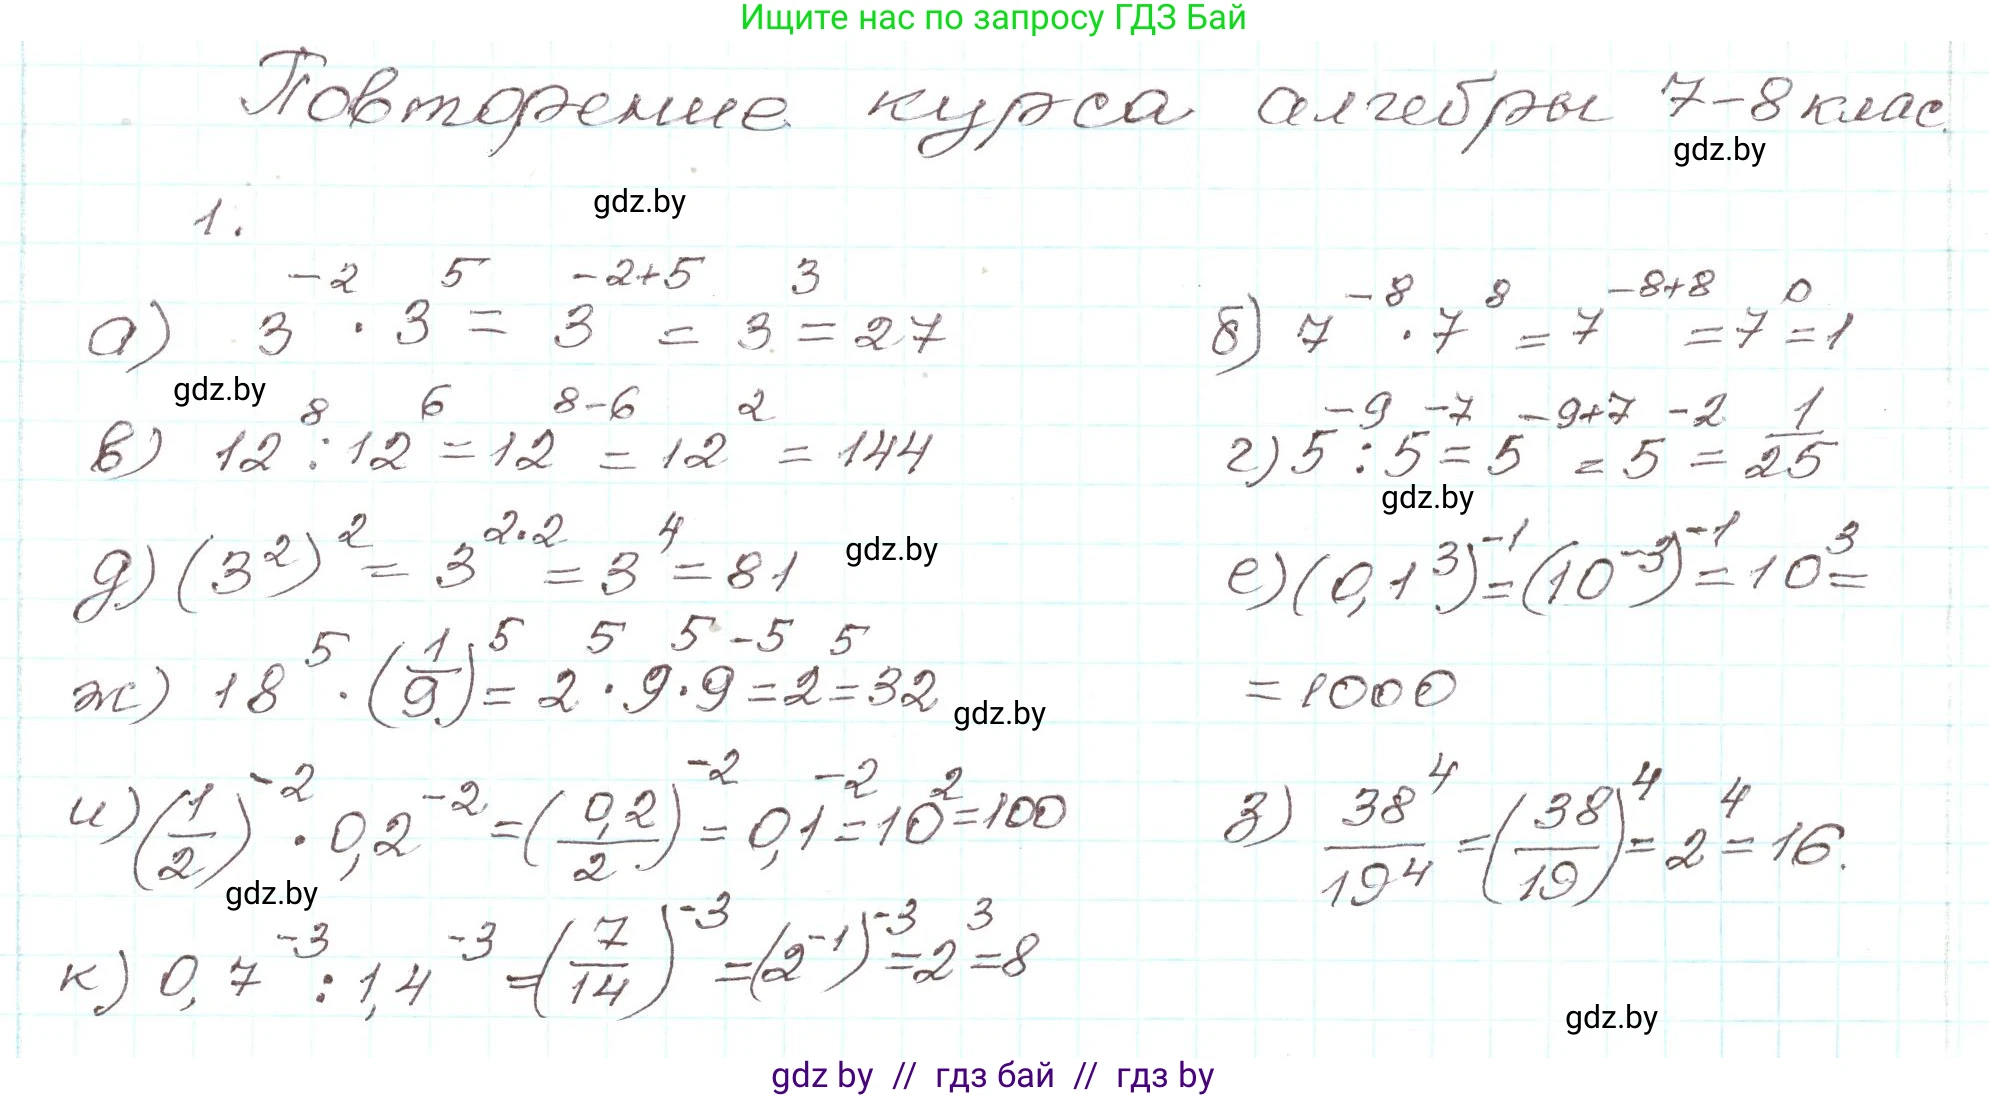 Ищите нас по запросу ГДЗ Бай
Повторение курса алгебры 7-8 клас.
gdz.by
1.
gdz.by
а) 3⁻² · 3⁵ = 3⁻²⁺⁵ = 3³ = 27
б) 7⁻⁸ · 7⁸ = 7⁻⁸⁺⁸ = 7⁰ = 1
gdz.by
в) 12⁸ : 12⁶ = 12⁸⁻⁶ = 12² = 144
г) 5⁻⁹ : 5⁻⁷ = 5⁻⁹⁺⁷ = 5⁻² = 1/25
gdz.by
д) (3²)² = 3²˙² = 3⁴ = 81
gdz.by
е) (0,1³)⁻¹ = (10⁻³)⁻¹ = 10³ =
ж) 18⁵ · (1/9)⁵ = 2⁵ · 9⁵ · 9⁻⁵ = 2⁵ = 32
gdz.by
= 1000
и) (1/2)⁻² · 0,2⁻² = (0,2/2)⁻² = 0,1⁻² = 10² = 100
з) 38⁴/19⁴ = (38/19)⁴ = 2⁴ = 16.
gdz.by
к) 0,7⁻³ : 1,4⁻³ = (7/14)⁻³ = (2⁻¹)⁻³ = 2³ = 8
gdz.by
gdz by // гдз бай // гдз by